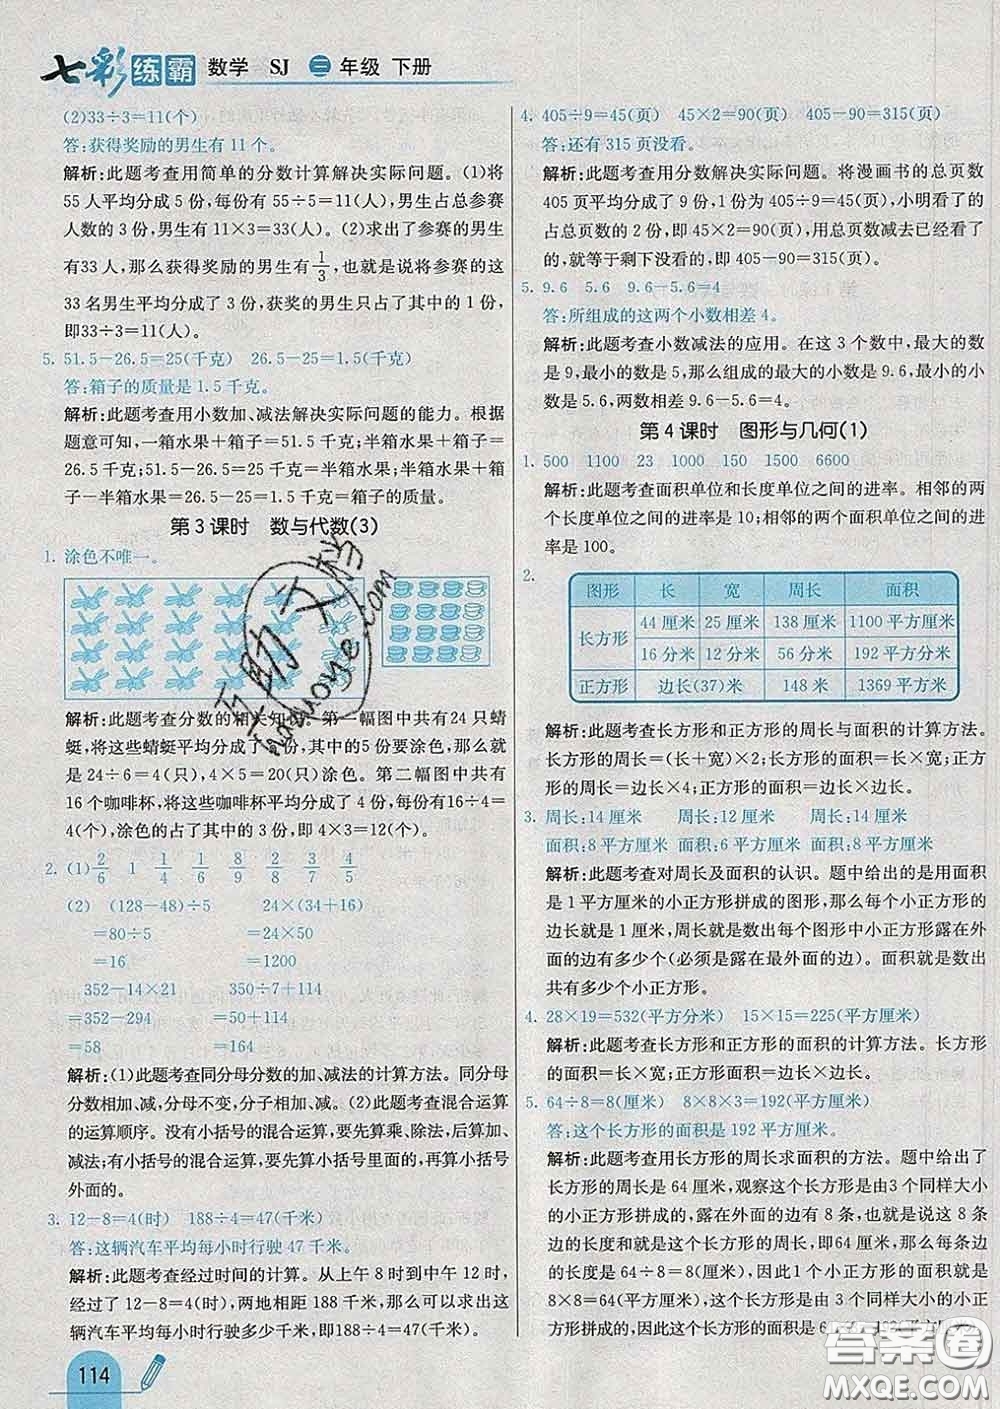 七彩练霸 数学 SJ 三年级 下册
(2)33÷3=11(个)
答:获得奖励的男生有 11 个。
解析:此题考查用简单的分数计算解决实际问题。(1)将
55 人平均分成 5 份,每份有 55÷5=11(人),男生占总参赛
人数的 3 份,男生有 11×3=33(人)。(2)求出了参赛的男生
有33 人,那么获得奖励的男生有 1/3,也就是说将参赛的
33 名男生平均分成了 3 份,获奖的男生只占了其中的 1 份,
即33÷3=11(人)。
5. 51.5-26.5=25(千克) 26.5-25=1.5(千克)
答:箱子的质量是 1.5 千克。
解析:此题考查用小数加、减法解决实际问题的能力。根据
题意可知,一箱水果+箱子=51.5 千克;半箱水果+箱子=
26.5 千克;51.5-26.5=25 千克=半箱水果;半箱水果+箱
子-半箱水果=26.5-25=1.5 千克=箱子的质量。
第 3 课时 数与代数(3)
1. 涂色不唯一。
解析:此题考查分数的相关知识。第一幅图中共有24 只蜻
蜓,将这些蜻蜓平均分成了 6 份,其中的5份要涂色,那么就
是 24÷6=4(只),4×5=20(只)涂色。第二幅图中共有
16 个咖啡杯,将这些咖啡杯平均分成了 4 份,每份有16÷4=
4(个),涂色的占了其中的 3 份,即 4×3=12(个)。
2. (1) 2/6 1 1/4 1/6 8/9 2/8 3/7 4/5
(2) (128-48)÷5 24×(34+16)
=80÷5 =24×50
=16 =1200
352-14×21 350÷7+114
=352-294 =50+114
=58 =164
解析:(1)此题考查同分母分数的加、减法的计算方法。同分母
分数相加、减,分母不变,分子相加、减。(2)此题考查混合运算
的运算顺序。没有小括号的混合运算,要先算乘、除法,后算加、
减法;有小括号的混合运算,要先算小括号里面的,再算小括号
外面的。
3. 12-8=4(时) 188÷4=47(千米)
答:这辆汽车平均每小时行驶 47 千米。
解析:此题考查经过时间的计算。从上午 8 时到中午 12 时,
经过了 12-8=4(时),两地相距 188 千米,那么可以求出这
辆汽车平均每小时行驶多少千米,即188÷4=47(千米)。
4. 405÷9=45(页) 45×2=90(页) 405-90=315(页)
答:还有 315 页没看。
解析:此题考查用分数解决实际问题。将漫画书的总页数
405 页平均分成了 9 份,1 份为 405÷9=45(页),小明看了的
占总页数的 2 份,即 45×2=90(页),用总页数减去已经看了
的,就等于剩下没看的,即 405-90=315(页)。
5. 9.6 5.6 9.6-5.6=4
答:所组成的这两个小数相差 4。
解析:此题考查小数减法的应用。在这 3 个数中,最大的数
是 9,最小的数是 5,那么组成的最大的小数是 9.6,最小的小
数是 5.6,两数相差 9.6-5.6=4。
第 4 课时 图形与几何(1)
1. 500 1100 23 1000 150 1500 6600
解析:此题考查面积单位和长度单位之间的进率。相邻的两
个长度单位之间的进率是 10;相邻的两个面积单位之间的进
率是 100。
2.
图形 长 宽 周长 面积
长方形 44 厘米 25 厘米 138 厘米 1100 平方厘米
16 分米 12 分米 56 分米 192 平方分米
正方形 边长(37)米 148 米 1369 平方米
解析:此题考查长方形和正方形的周长与面积的计算方法。
长方形的周长=(长+宽)×2;长方形的面积=长×宽。正
方形的周长=边长×4;正方形的面积=边长×边长。
3. 周长:14 厘米 周长:12 厘米 周长:14 厘米
面积:8 平方厘米 面积:6 平方厘米 面积:8 平方厘米
解析:此题考查对周长及面积的认识。题中给出的是用面积
是 1 平方厘米的小正方形拼成的图形,那么每个小正方形的
边长就是 1 厘米,周长就是数出每个图形中小正方形露在外
面的边有多少个(必须是露在最外面的边)。面积就是数出
共有多少个小正方形。
4. 28×19=532(平方分米) 15×15=225(平方厘米)
解析:此题考查长方形和正方形的面积的计算方法。长方形
的面积=长×宽;正方形的面积=边长×边长。
5. 64÷8=8(厘米) 8×8×3=192(平方厘米)
答:这个长方形的面积是 192 平方厘米。
解析:此题考查用长方形的周长求面积的方法。题中给出了
长方形的周长是 64 厘米,观察这个长方形是由3 个同样大小
的小正方形拼成的,露在外面的边有 8 条,也就是说这 8 条
边的长度和就是这个长方形的周长,即 64 厘米,那么每条边
的长度是 64÷8=8(厘米),因此1个小正方形的面积就是
8×8=64(平方厘米),而这个长方形是由3 个同样大小的小正
方形拼成的,因此这个长方形的面积是
114
互助文档
huzhuone.com
答案圈
MXQE.COM